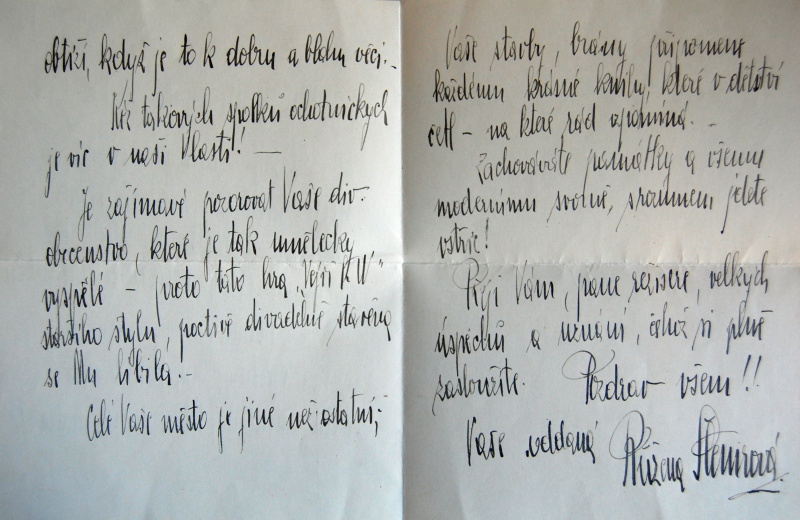 obtíží, když je to k dobru a blahu věci.-
Kéž takových spolků ochotnických
je víc v naší vlasti! —
Je zajímavé pozorovat Vaše div-
obecenstvo, které je tak umělecky
vyspělé - proto tato hra
staršího stylu, poctivě divadelně stavěná
se Mu líbila.-
Celé Vaše město je jiné než ostatní,
Vaše stavby, brány připomene
každému krásné knihy, které v dětství
četl - na které rád vzpomíná. -
Zachováváte památky a všemu
modernímu svorně, s rozumem jdete
vstříc!
Přeji Vám, pane režisére, velkých
úspěchů a uznání, čehož si plně
zasloužíte. Pozdrav všem!!
Vaše oddaná Růžena Šlemrová.